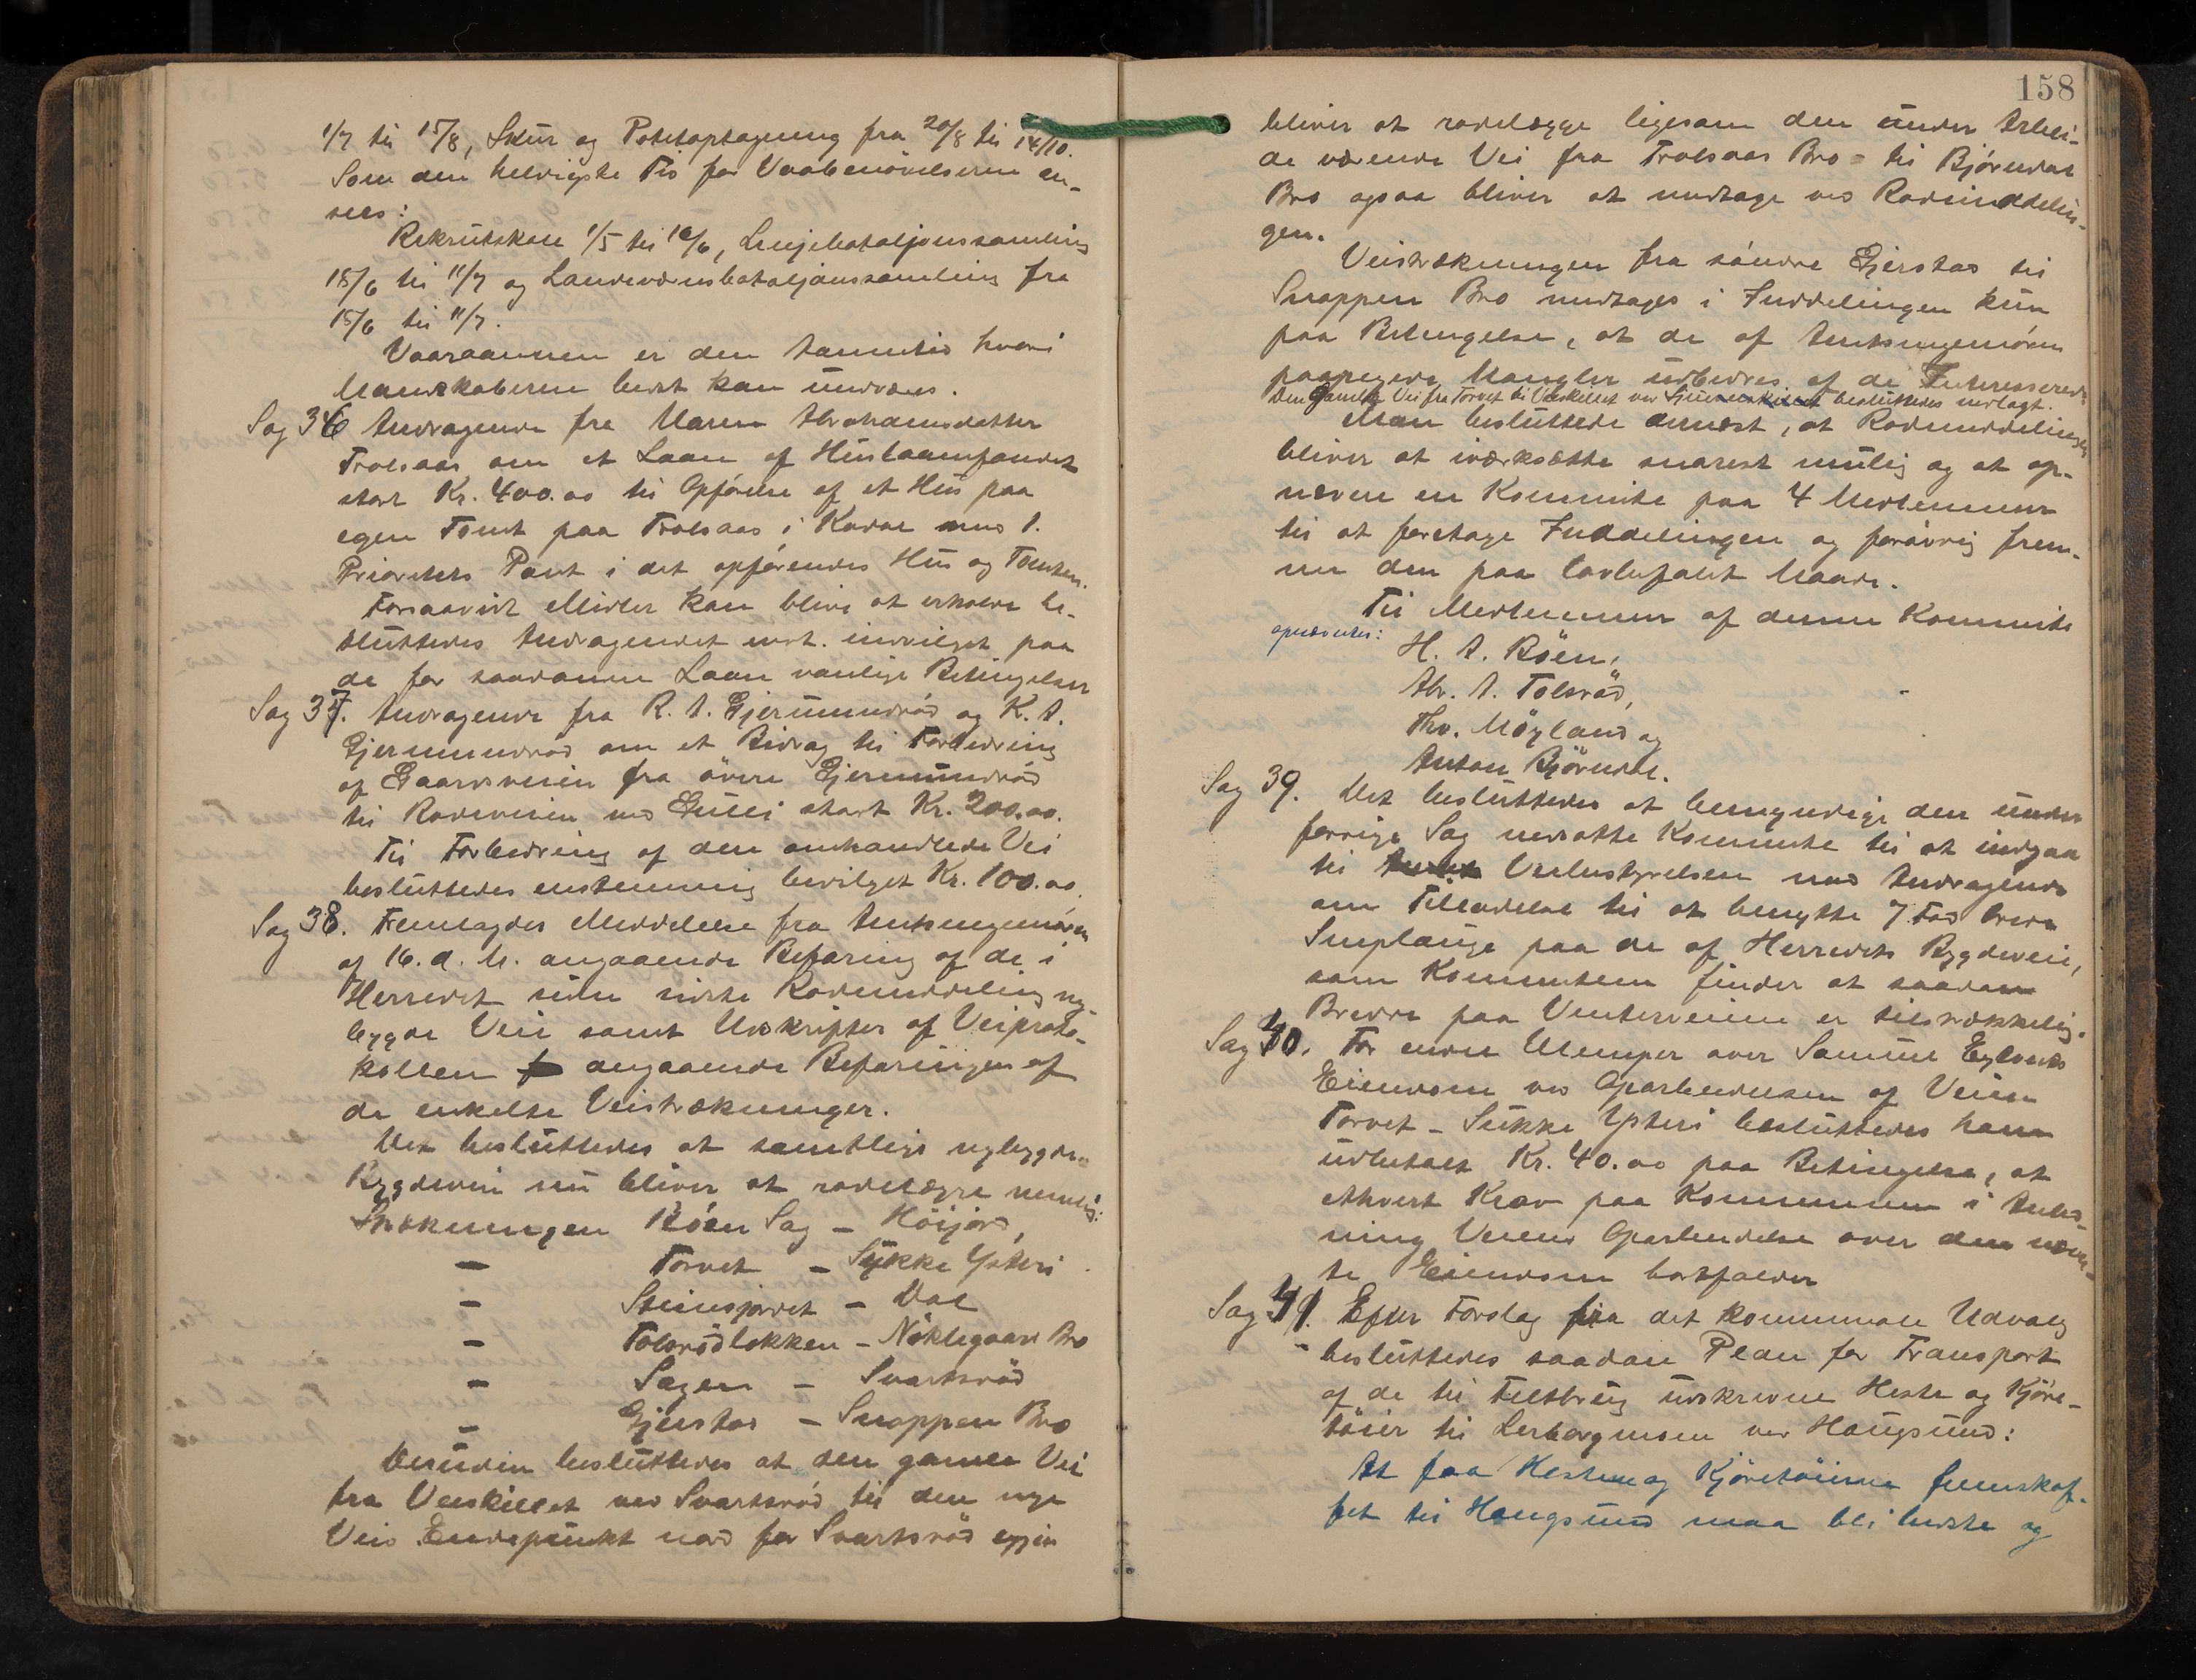 1/7 til 15/8, Skur og Potetoptagning fra 20/8 til 14/10.
Som den heldigste Tid for Vaabenøvelserne an-
sees:
Rekrutskole 1/5 til 16/6, Linjebataljonssamling
18/6 til 11/7 og Landeværnsbataljonssamling fra
15/6 til 11/7.
Vaaraannen er den Aarstid hvori
Mandskaberne bedst kan undværes.
Sag 36 Andragende fra Maren Abrahamsdatter
Trolsaas om et Laan af Huslaanfondet
stort Kr. 400.00 til Opførelse af et Hus paa
egen Tomt paa Trolsaas i Kodal mod 1.
Prioritets Pant i det opførendes Hus og Tomten.
Forsaavidt Midler kan blive at erholde be-
sluttedes Andragendet enst. indvilget paa
de for saadanne Laan vanlige Betingelser
Sag 37. Andragende fra R. A. Gjermundrød og K. A.
Gjermundrød om et Bidrag til Forbedring
af Gaardsveien fra övre Gjermundröd
til Rodeveien ved Gulli stort Kr. 200.00.
Til Forbedring af den omhandlede Vei
besluttedes enstemmig bevilget Kr. 100.00.
Sag 38. Fremlagdes Meddelelse fra Amtsingeniøren
af 16. d. M. angaaende Befaring af de i
Herredet siden sidste Rodeinddeling ny-
byggde Veie samt Udskrifter af Veiproto-
kollen angaaende Befaringen af
de enkelte Veistrækninger.
Det besluttedes at samtlige nybyggde
Bygdeveie nu bliver at rodelægge nemlig:
Strækningen Röen Sag – Höijord,
– Torvet – Sukke Ysteri
– Steinsjordet – Dal
– Tolsrödlökken – Nöklegaard Bro
– Sagen – Svartsröd
– Gjerstad – Snappen Bro
Desuden besluttedes at den gamle Vei
fra Veiskillet ved Svartsröd til den nye
Veis Endepunkt nord for Svartsröd igjen
158
bliver at rodelægge ligesom den under Arbei-
de værende Vei fra Trolsaas Bro til Bjørndal
Bro ogsaa bliver at medtage ved Rodeinddelin-
gen.
Veistrækningen fra søndre Gjerstad til
Snappen Bro medtages i Inddelingen kun
paa Betingelse, at de af Amtsingeniøren
paapegede Mangler udbedres af de Interesserede
Den gamle Vei fra Torvet til Veiskillet ved besluttedes nedlagt.
Man besluttede dernæst, at Rodeinddelingen
bliver at iværksætte snarest mulig og at op-
nævne en Kommite paa 4 Medlemmer
til at foretage Inddelingen og forøvrig frem-
me den paa lovbefalet Maade.
Til Medlemmer af denne Kommite
opnævntes:
H. A. Röen,
Abr. A. Tolsröd,
Thv. Möyland og
Anton Björndal.
Sag 39. Det besluttedes at bemyndige den under
forrige Sag nedsatte Kommite til at indgaa
til Veibestyrelsen med Andragende
om Tilladelse til at benytte 7 Fod brede
Sneplouge paa de af Herredets Bygdeveie,
som Kommiteen finder at saadan
Bredde paa Vinterveiene er tilstrækkelig.
Sag 40. For endel Ulemper over Samuel Eglands
Eiendom ved Oparbeidelsen af Veien
Torvet – Sukke Ysteri besluttedes ham
udbetalt Kr. 40.00 paa Betingelse, at
ethvert Krav paa Kommunen i Anled-
ning Veiens Oparbeidelse over den nævn-
te Eiendom bortfalder
Sag 41. Efter Forslag fra det kommunale Udvalg
besluttedes saadan Plan for Transport
af de til Feltbrug udskrevne Heste og Kjøre-
töier til Lerbergmoen ved Hougsund:
At faa Hestene og Kjøretöierne fremskaf-
fet til Hougsund maa bli bedste og